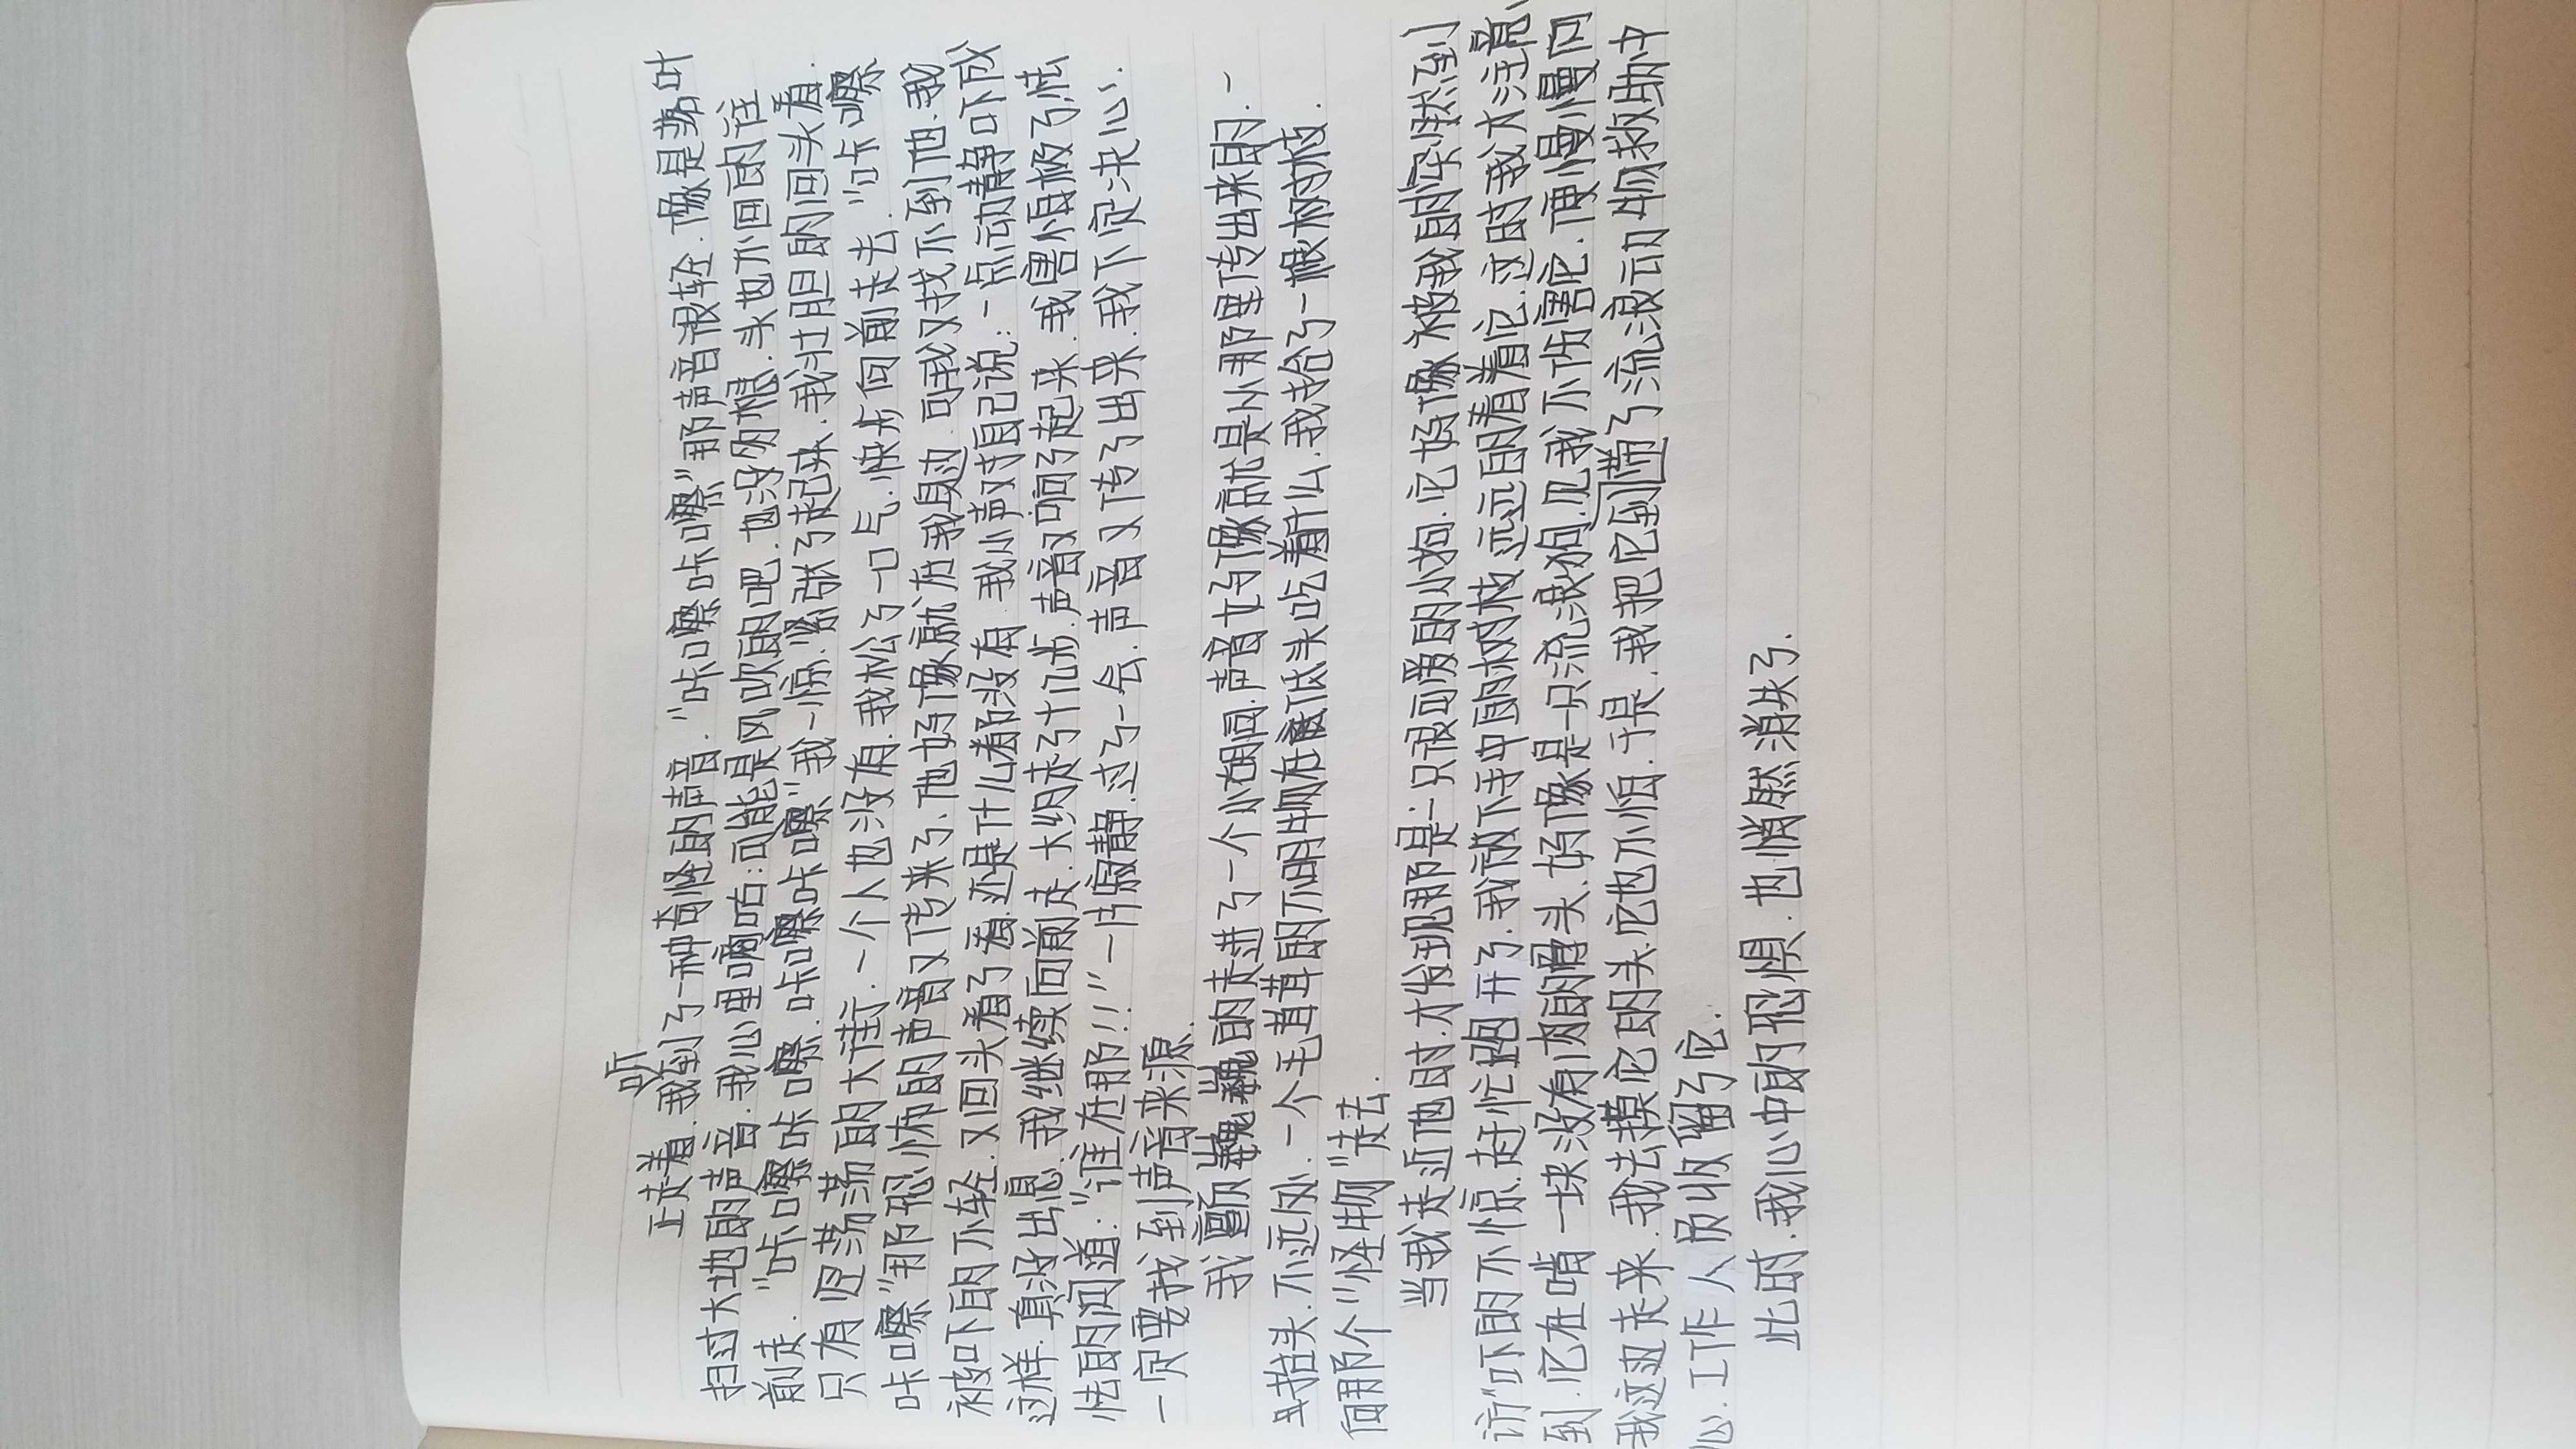 正走着.我听到了一种奇怪的声音."咔嚓咔嚓"那声音很轻.像是落叶
扫过大地的声音.我心里嘀咕:可能是风吹的吧.也没多想.头也不回的往
前走."咔嚓咔嚓.咔嚓咔嚓"我一惊.紧张了起来.我壮胆的回头看.
只有空荡荡的大街.一个人也没有.我松了一口气.快步向前走去."咔嚓
咔嚓"那恐怖的声音又传来了.他好像就在我身边.可我又找不到他.我
被吓的不轻.又回头看了看.还是什么都没有.我小声对自己说:一点动静吓成
这样.真没出息.我继续向前走.大约走了十几步.声音又响了起来.我害怕极了.怯
怯的问道:"谁在那!!"一片寂静.过了一会.声音又传了出来.我下定决心.
一定要找到声音来源.
我颤巍巍的走进了一个小胡同.声音好像就是从那里传出来的.一
抬头.不远处.一个毛茸茸的不明物在低头吃着什么.我拾了一根树枝.
向那个"怪物"走去.
当我走近他时.才发现那是:一只很可爱的小狗.它好像被我的"突然到
访"吓的不惊.赶忙跑开了.我放下手中的树枝远远的看着它.这时我才注意
到.它在啃一块没有肉的骨头.好像是一只流浪狗.见我不伤害它.便慢慢向
我这边走来.我去摸它的头.它也不怕.于是.我把它带到了流浪动物救助中
心.工作人员收留了它.
此时.我心中的恐惧.也悄然消失了.